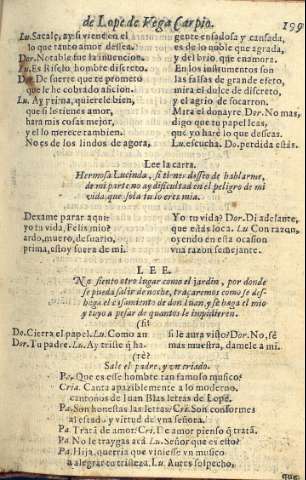 de Lope de Vega Carpio. 199
Lu. Sacalç, ay si vienen el
lo que tanto amor dessea.
Dor. Notable fue la inuencion.
Lu. Es Riselo hombre discreto.
Dor. De suerte que te prometo
que le he cobrado aficion.
Lu. Ay prima, quierele bien,
que si le tienes amor,
hara mis cosas mejor,
y el lo merece tambien.
No es de los lindos de agora,
gente enfadosa y cansada,
es de lo noble que agrada,
y del brio que enamora.
En los instrumentos son
las falsas de grande efeto,
mira el dulce de discreto,
y el agrio de socarron.
Mira el donayre Dor. No mas,
digo que tu papel leas,
que yo haré lo que desseas.
Lu escucha. Do. perdida estás.
Lee la carta.
Hermosa Lucinda, si tienes desseo de hablarme,
de mi parte no ay dificultad en el peligro de mi
vida que sola tu lo eres mia.
Dexame parar aqui
yo tu vida, Felis mio?
ardo, muero, desuario,
prima, estoy fuera de mi.
Yo tu vida? Dor. Di adelante,
que estàs loca. Lu Con razon,
oyendo en esta ocasion
vna razon semejante.
LEE.
No siento otro lugar como el jardin, por donde
se pueda salir de noche, traçaremos como se des-
haga el casamiento de don Iuan, y se haga el mio
y tuyo a pesar de quantos lo impidieren.
Do. Cierra el papel. Lu. Como an
Dor. Tu padre. Lu. Ay triste q̃ ha.
si le aura visto? Dor. No, sè
mas muestra, damele a mi.
Sale el padre, y vn criado.
Pa. Que es esse hombre tan famoso musico?
Cria. Canta apaziblemente a lo moderno,
cantonos de Iuan Blas letras de Lope.
Pa. Son honestas las letras? Cri. Son conformes
al estado y virtud de vna señora.
Pa. Tratã de amor? Cri. De amor pienso q̃ tratã.
Pa. No le traygas acà Lu. Señor que es esto?
Pa. Hija, querria que viniesse vn musico
a alegrar tu tristeza. Lu. Antes sospecho,
que